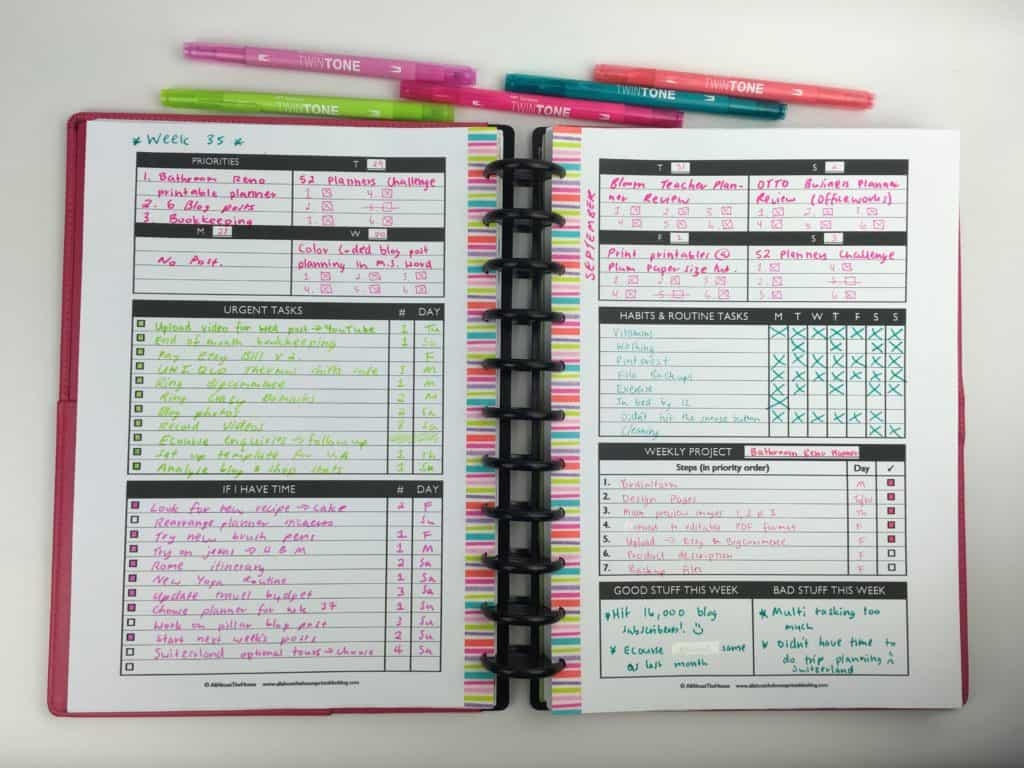 TWINTONE
TWINTONE
TWINTONE
TWINTONE
TWINTONE
* Week 35 *
PRIORITIES
T 29
1. Bathroom Reno
printable planner
2. 6 Blog posts
3. Bookkeeping
52 Planners Challenge
1. 4.
2. 5.
3. 6.
M 28
W 30
No Post.
Color Coded blog post
planning in M.S. Word
1. 2. 3.
4. 5. 6.
URGENT TASKS # DAY
Upload video for wed post → YouTube 1 Tu
End of month bookkeeping 1 Su
Pay Etsy Bill F
Thermos 1 M
Ring 1 M
Ring Crazy 2 M
Blog photos 2 Sa
Record Videos Sa
Ecourse enquiries → followup
Set up template for VA 1 Th
Analyse blog & shop stats 1 Su
IF I HAVE TIME # DAY
Look for new recipe → Cake 2 F
Rearrange planner Su
Try new brush pens 1 F
Try on jeans → H & M 1 M
Rome itinerary 2 Sa
New Yoga Routine 1 Sa
Update travel budget 3 Sa
Choose planner for wk 37 1 Su
Work on pillar blog post 3 Su
Start next week's posts 2 Su
Switzerland optional tours → choose 4 Sa
© AllAboutTheHouse www.allaboutthehouseprintablesblog.com
SEPTEMBER
T 31
S 2
Bloom Teacher Plan-
ner Review
1. 2. 3.
4. 5. 6.
OTTO Business Planner
Review (Officeworks)
1. 2. 3.
4. 5. 6.
F 1
S 3
Print printables @
Plum Paper size tut.
1. 2. 3.
4. 5. 6.
52 Planners Challenge
1. 4.
2. 5.
3. 6.
HABITS & ROUTINE TASKS M T W T F S S
Vitamins
Washing
Pinterest
File Backups
Exercise
In bed by 12
Didn't hit the snooze button
Cleaning
WEEKLY PROJECT Bathroom Reno
Steps (in priority order) Day ✓
1. Brainstorm M
2. Design Pages
3. Make preview images 1, 2 & 3 Th
4. to editable PDF format F
5. Upload → Etsy & BigCommerce F
6. Product description F
7. Backup Files F
GOOD STUFF THIS WEEK
BAD STUFF THIS WEEK
* Hit 16,000 blog
subscribers!
* Ecourse same
as last month
* Multi tasking too
much
* Didn't have time to
do trip planning
Switzerland
© AllAboutTheHouse www.allaboutthehouseprintablesblog.com